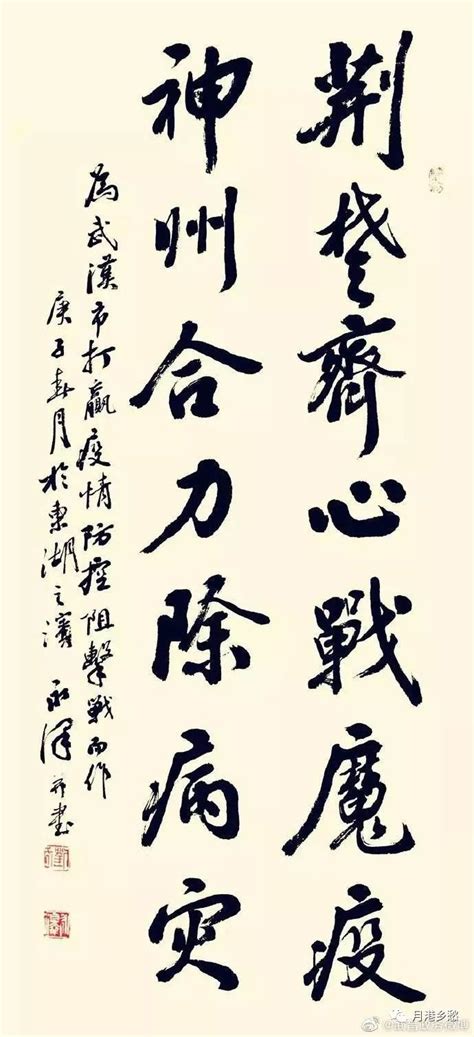 荆楚齊心戰魔疫
神州合力除病灾
為武漢市打贏疫情防控阻擊戰而作
庚子春月於東湖之濱 永澤并書
月港乡愁